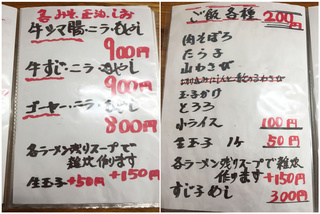 各みそ、正油、しお
牛シマ腸・ニラ・もやし
900円
牛すじ・ニラ・もやし
900円
ゴーヤー・ニラ・もやし
800円
各ラーメン残りスープで
雑炊作ります
+150円
生玉子+50円
ご飯各種 200円
肉そぼろ
たら子
山わさび
玉子かけ
とろろ
小ライス 100円
生玉子 1ヶ 50円
各ラーメン残りスープで雑炊
作ります+150円
すじこめし 300円